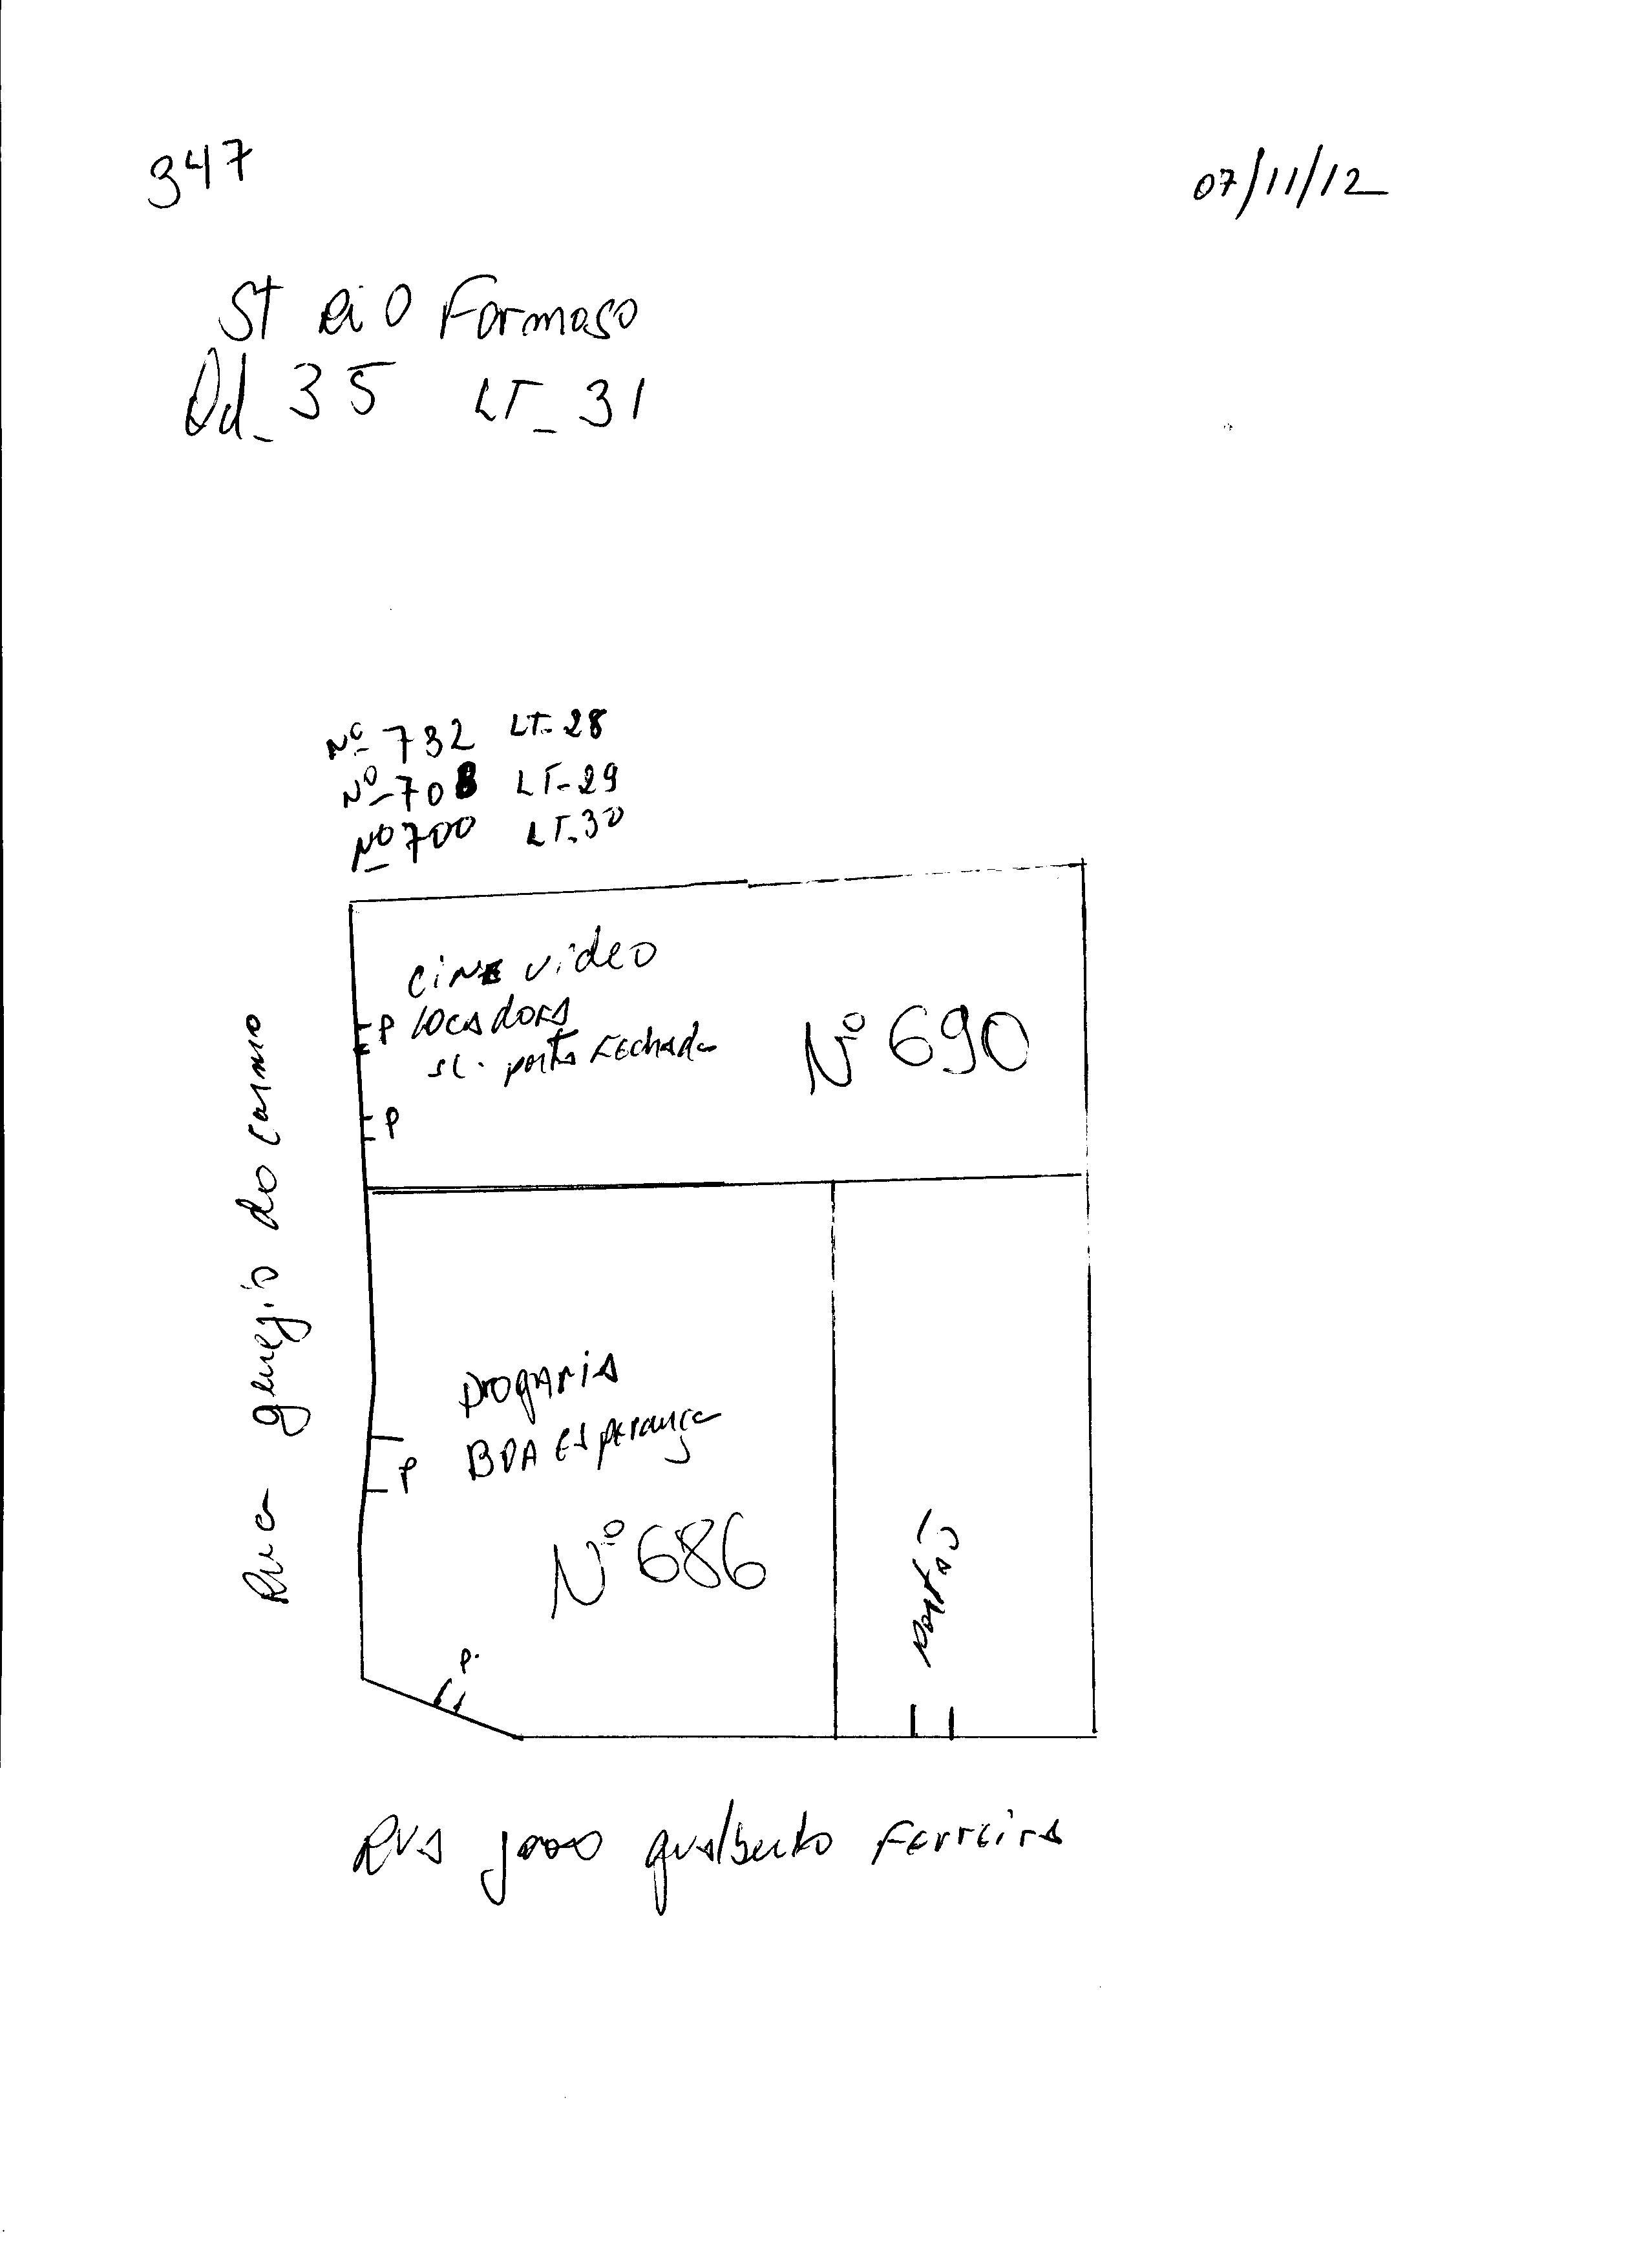 347
07/11/12
ST Rio Formoso
Qd_35 LT_31
Nº 732 LT-28
Nº 708 LT-29
Nº 700 LT-30
Cine video
P locadora
sl. porta Fechada
Nº 690
P
Rua genezio do carmo
Drogaria
BOA Esperança
P
Nº 686
P.
portão
RUA joao gualberto Ferreira